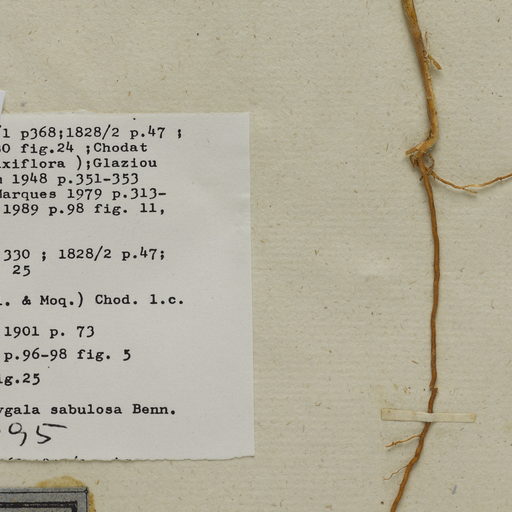 /1 p368;1828/2 p.47 ;
0 fig.24 ;Chodat
xiflora );Glaziou
1948 p.351-353
Marques 1979 p.313-
1989 p.98 fig. 11,
330 ; 1828/2 p.47;
25
. & Moq.) Chod. l.c.
1901 p. 73
p.96-98 fig. 5
g.25
ygala sabulosa Benn.
95